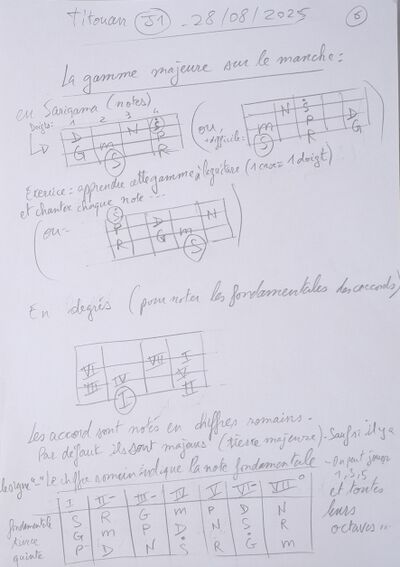 Titouan J1 - 28/08/2025
6
La gamme majeure sur le manche :
en Sarigama (notes)
Doigts: 1 2 3 4
D N Ṡ
G m P
S R
( ou, + difficile :
N Ṡ
P D
m R G
S )
Exercice : apprendre cette gamme à la guitare (1 case = 1 doigt)
et chanter chaque note ...
( ou -
Ṡ N
P D
R G m
S )
En degrés (pour noter les fondamentales des accords)
VI VII I
III IV V
I II
Les accord sont notés en chiffres romains.
Par défaut ils sont majeurs (tierce majeure). Sauf si il y a
le signe "-" Le chiffre romain indique la note fondamentale - On peut jouer
1, 3, 5
et toutes
leurs
octaves ...
I II- III- IV V VI- VII°
fondamentale S R G m P D N
tierce G m P D N Ṡ R
quinte P D N Ṡ R G m